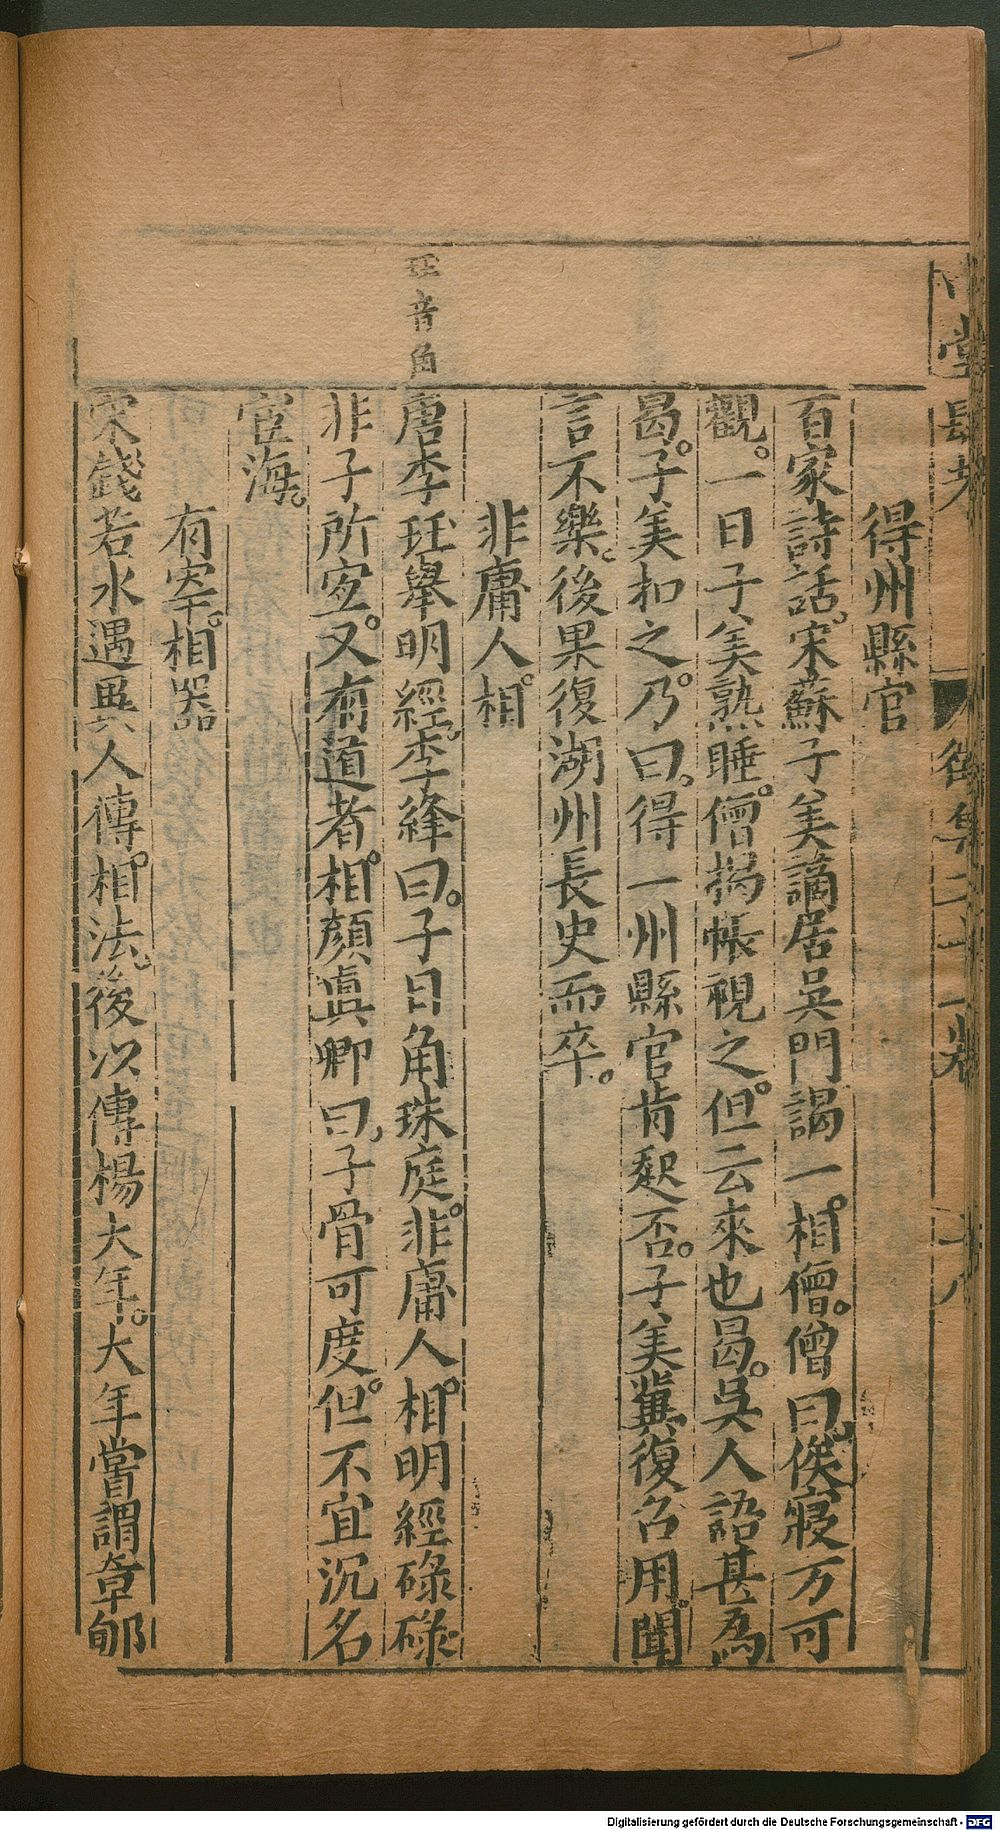 得州縣官
百家詩話宋蘇子美謫居吳門謁一相僧僧曰俟寢方可
觀一日子美熟睡僧揭帳視之但云來也曷吳人語甚爲
曷子美扣之乃曰得一州縣官肯起否子美冀復召用聞
言不樂後果復湖州長史而卒
非庸人相
唐李珏舉明經李絳曰子日角珠庭非庸人相明經碌碌
非子所宜又有道者相顏眞卿曰子骨可度但不宜沉名
宦海
有宰相器
宋錢若水遇異人傳相法後以傳楊大年大年嘗謂章郇
珏音角
後集二十一卷 十八
Digitalisierung gefördert durch die Deutsche Forschungsgemeinschaft - DFG